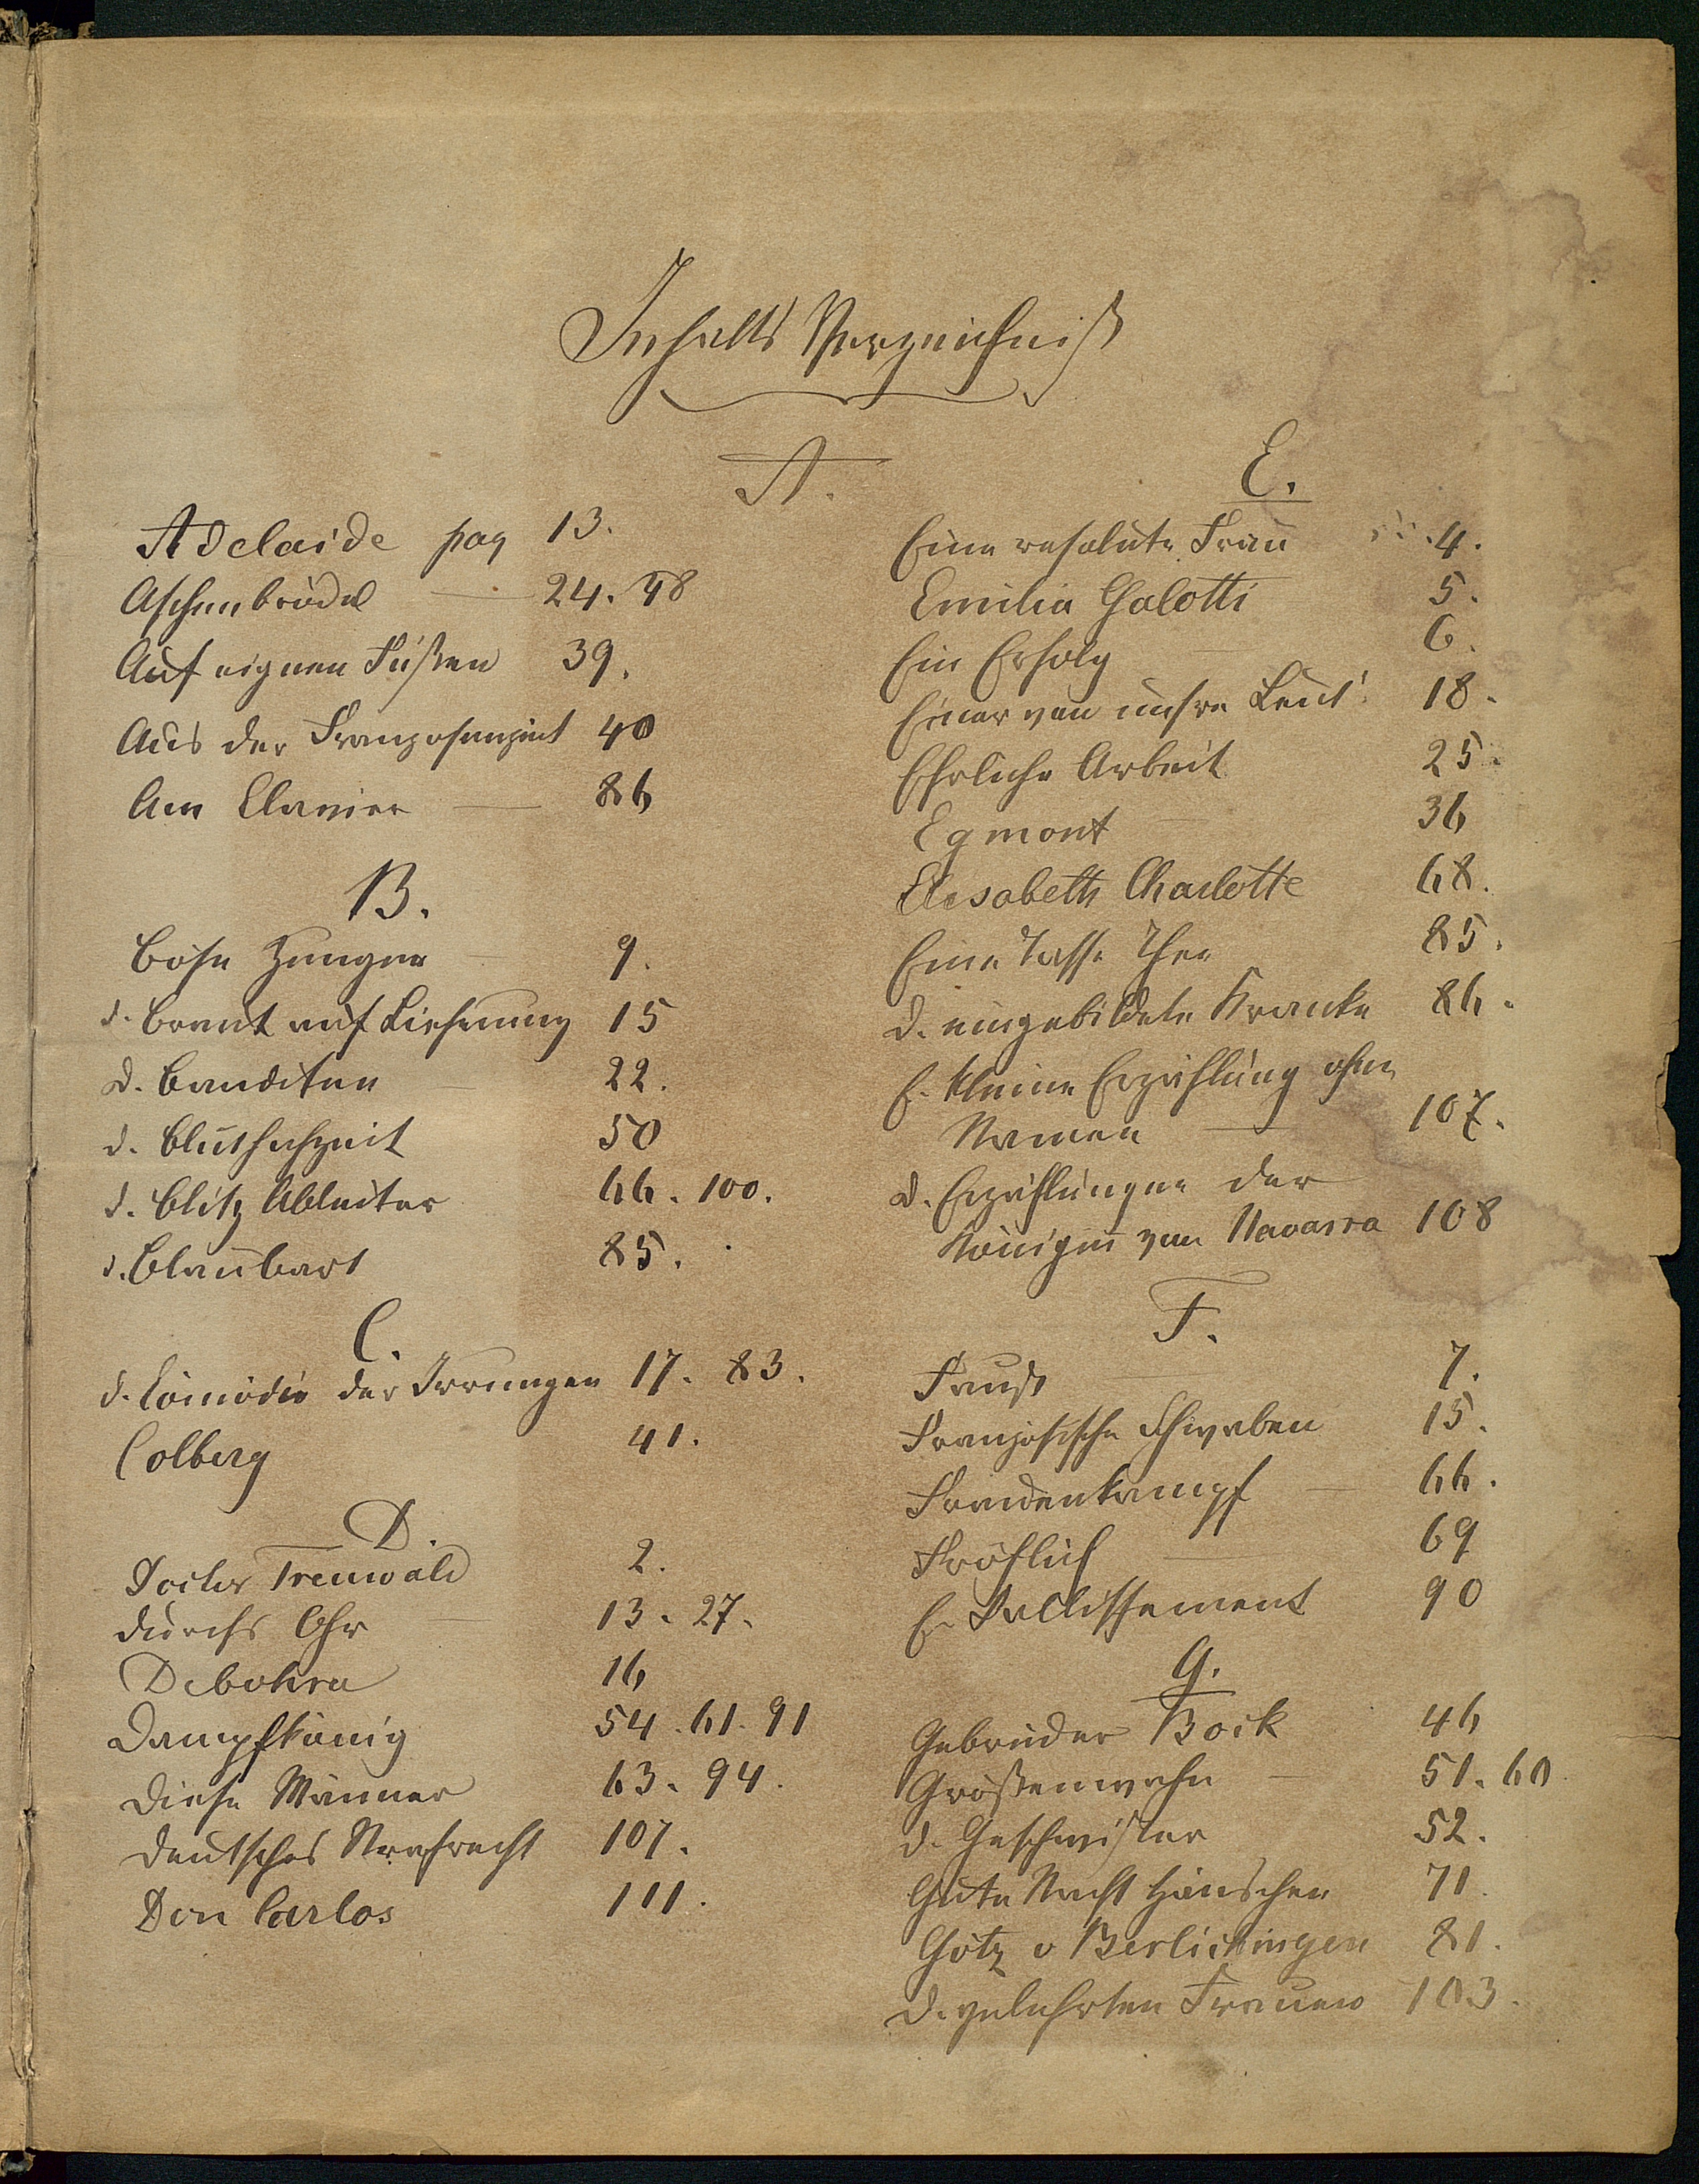 Inhalts Verzeichniß
A.
Adelaide pag 13.
Aschenbrödel — 24. 48
Auf eignen Füßen 39.
Aus der Franzosenzeit 40
Am Clavier — 86
B.
Böse Zungen 9.
d. Braut auf Lieferung 15
d. Banditen 22.
d. Bluthochzeit 50
d. Blitz Ableiter 66. 100.
d. Blaubart 85.
C.
d. Comödie der Irrungen 17. 83.
Colberg 41.
D.
Doctor Treuwald 2.
Durchs Ohr — 13. 27.
Debohra 16
Dampfkönig 54. 61. 91
Diese Männer 63. 94.
Deutsches Strafrecht 107.
Don Carlos 111.
E.
Eine resolute Frau 4.
Emilia Galotti 5.
Ein Erfolg 6.
Einer von unsre Leut' 18.
Ehrliche Arbeit 25.
Egmont 36
Elisabeth Charlotte 68.
Eine Tasse Thee 85.
d. eingebildete Kranke 86.
E. kleine Erzählung ohne
Namen — 107.
d. Erzählungen der
Königin von Navarra 108
F.
Faust 7.
Französische Schwaben 15.
Frauenkampf — 66.
Fröhlich 69
E. Fallissement 90
G.
Gebrüder Bock 46
Größenwahn — 51. 60
d. Geschwister 52.
Gute Nacht Hänschen 71.
Götz v Berlichingen 81.
d. gelehrten Frauen 103.